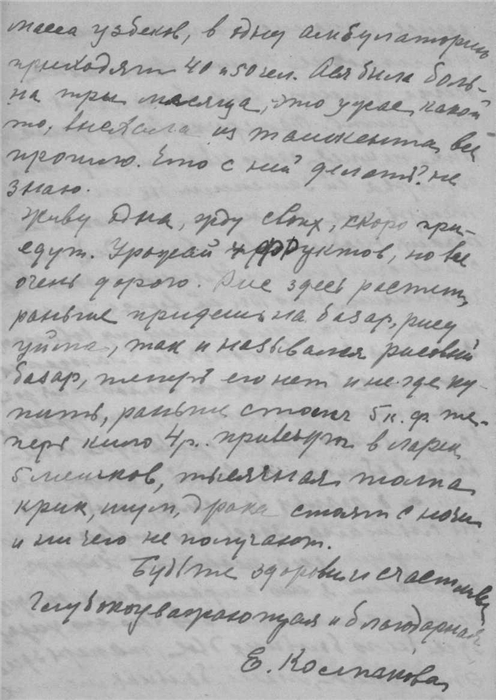 масса узбеков, в одну амбулаторию
приходят 40 и 50 чел. Ася была боль-
на три месяца, это ужас какой
то, выехала из Ташкента, всё
прошло. Что с ней делать? не
знаю.
Живу одна, жду своих, скоро при-
едут. Урожай фруктов, но все
очень дорого. Рис здесь растет,
раньше придешь на базар, рису
уйма, так и назывался рисовый
базар, теперь его нет и не где ку-
пить, раньше стоил 5 к. ф. те-
перь кило 4 р. привезут в ларек
5 мешков, тысячная толпа
крик, шум, драка стоят с ночи
и ни чего не получают.
Будьте здоровы и счастливы
Глубокоуважающая и благодарная
Е. Колпакова